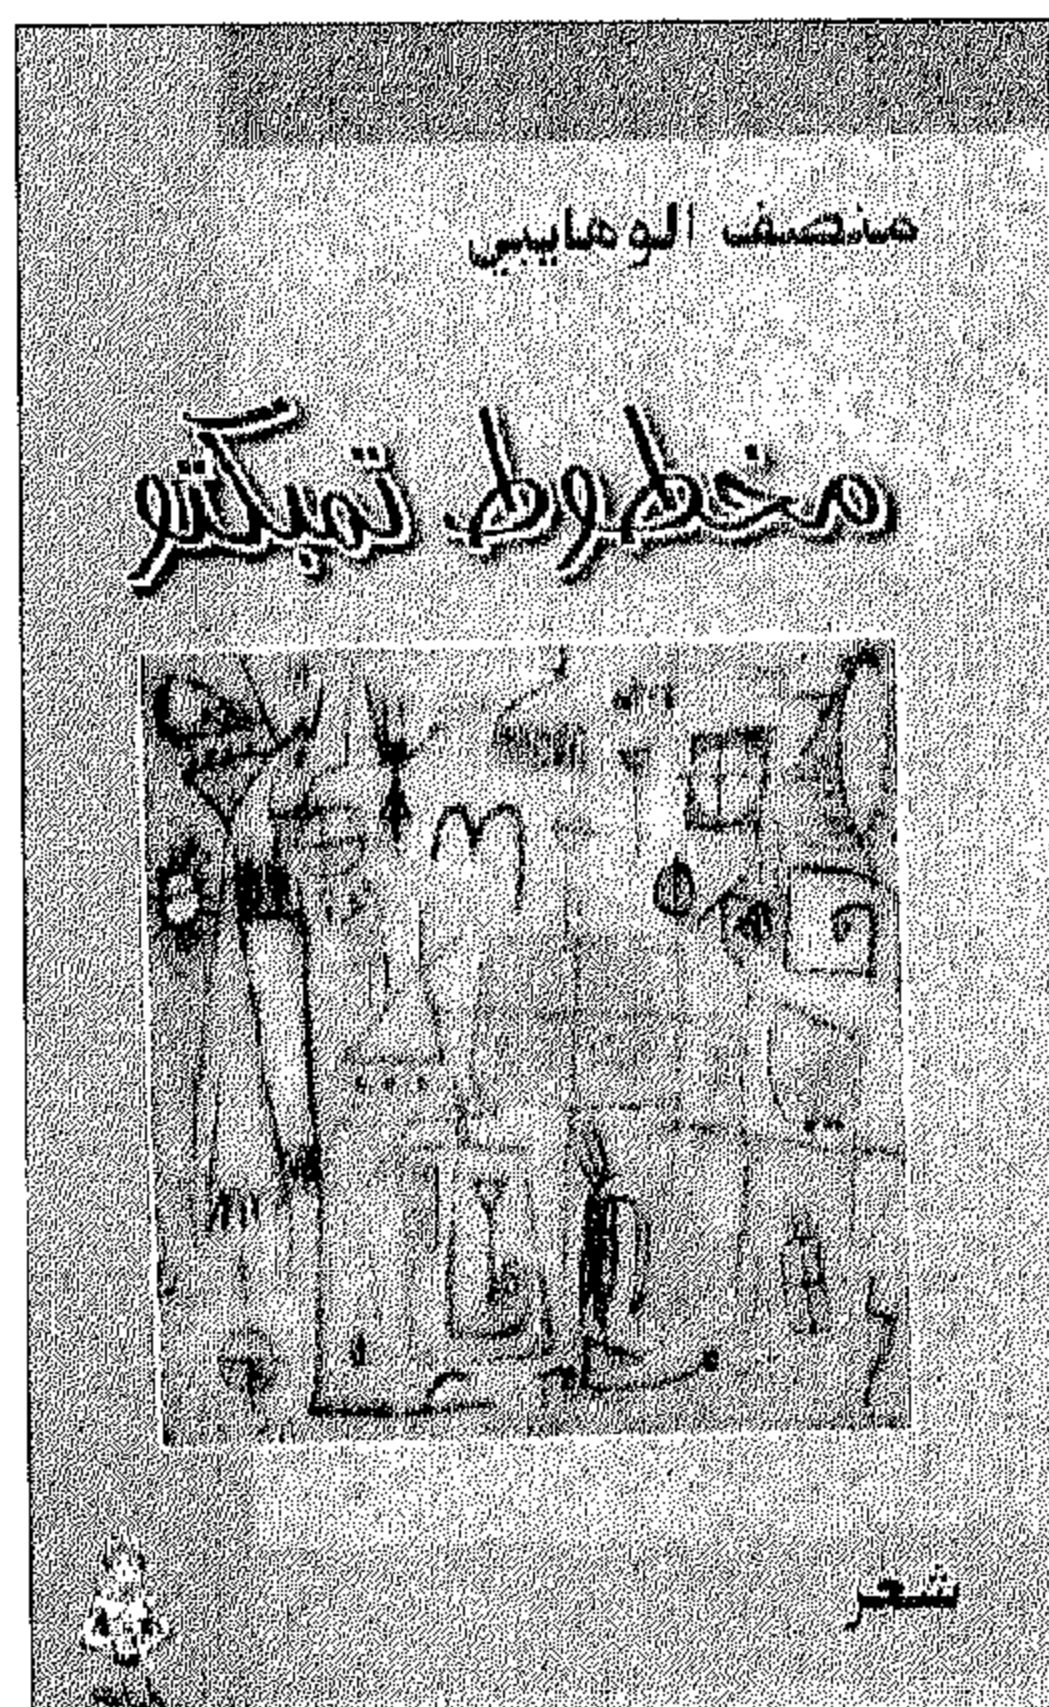 منصف الوهايبي
مخطوط تمبكتو
شعر